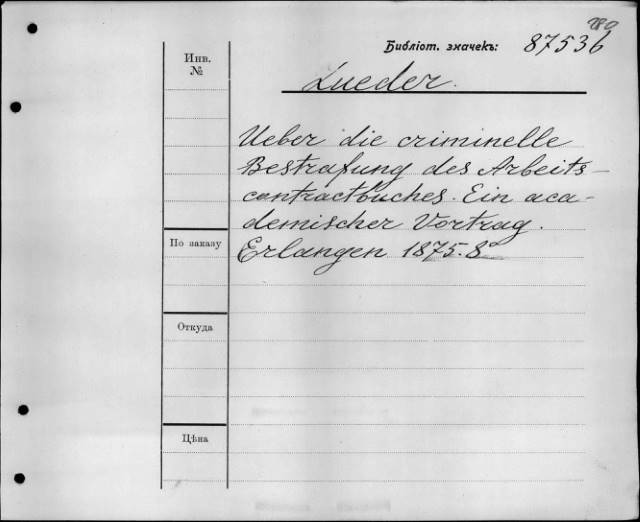 280
Библіот. значекъ: 87536
Инв.
№
Lueder.
Ueber die criminelle
Bestrafung des Arbeits-
contractbuches. Ein aca-
demischer Vortrag.
По заказу
Erlangen 1875. 8°
Откуда
Цѣна